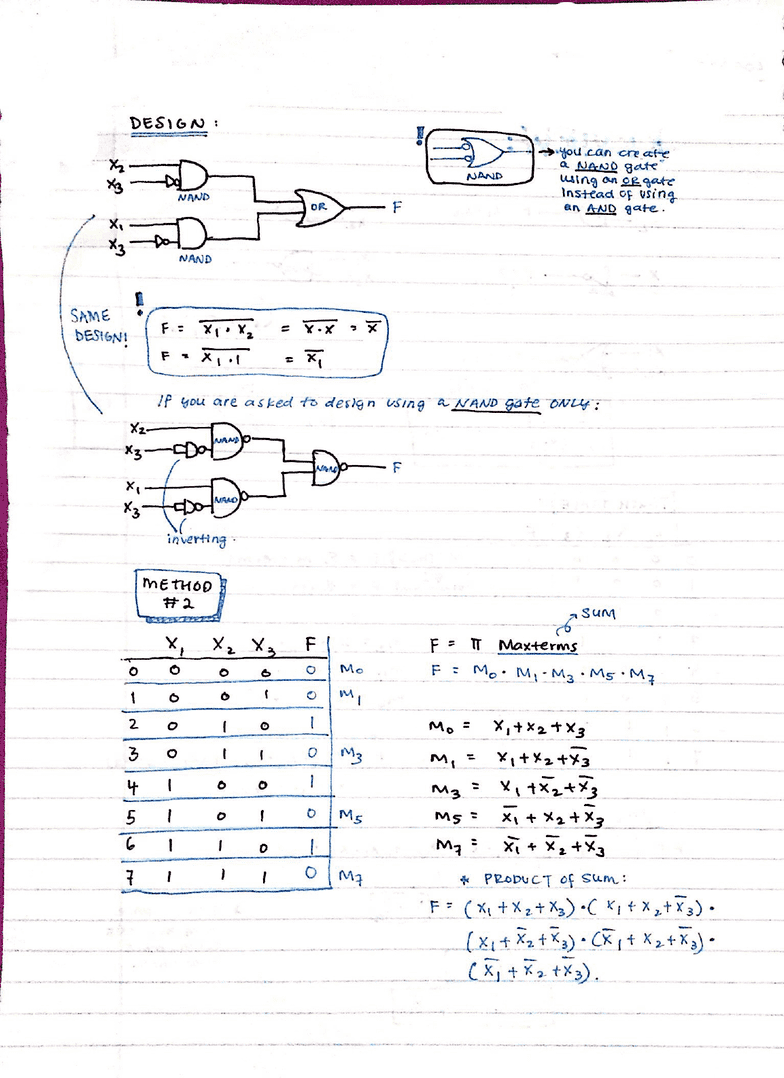 DESIGN :
! NAND
→ you can create
a NAND gate
using an OR gate
instead of using
an AND gate.
X₂
X₃
NAND
OR
F
X₁
X₃
NAND
SAME
DESIGN!
!
F = \overline{X₁ · X₂} = \overline{X·X} = X̅
F = \overline{X₁ · 1} = X̅₁
If you are asked to design using a NAND gate ONLY :
X₂
X₃
NAND
NAND
F
X₁
X₃
NAND
inverting.
METHOD
#2
X₁ X₂ X₃ F
0 0 0 0 0 M₀
1 0 0 1 0 M₁
2 0 1 0 1
3 0 1 1 0 M₃
4 1 0 0 1
5 1 0 1 0 M₅
6 1 1 0 1
7 1 1 1 0 M₇
SUM
F = π Maxterms
F = M₀ · M₁ · M₃ · M₅ · M₇
M₀ = X₁+X₂+X₃
M₁ = X₁+X₂+X̅₃
M₃ = X₁+X̅₂+X̅₃
M₅ = X̅₁+X₂+X̅₃
M₇ = X̅₁+X̅₂+X̅₃
* PRODUCT of SUM :
F = (X₁+X₂+X₃)·(X₁+X₂+X̅₃)·
(X₁+X̅₂+X̅₃)·(X̅₁+X₂+X̅₃)·
(X̅₁+X̅₂+X̅₃).